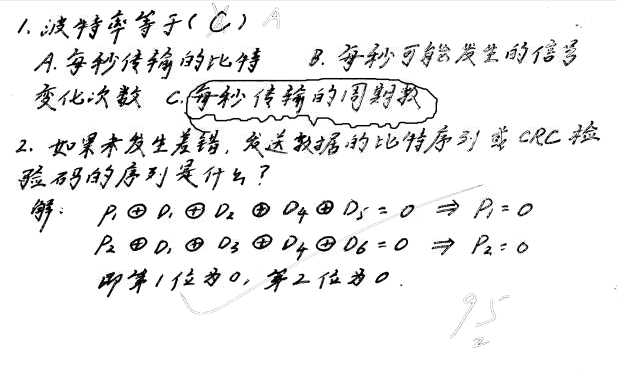 1. 波特率等于( C ) A
A. 每秒传输的比特 B. 每秒可能发生的信号
变化次数 C. 每秒传输的周期数
2. 如果未发生差错, 发送数据的比特序列或 CRC 检
验码的序列是什么?
解: P₁ ⊕ D₁ ⊕ D₂ ⊕ D₄ ⊕ D₅ = 0 ⇒ P₁ = 0
P₂ ⊕ D₁ ⊕ D₃ ⊕ D₄ ⊕ D₆ = 0 ⇒ P₂ = 0
即第1位为0, 第2位为0.
95